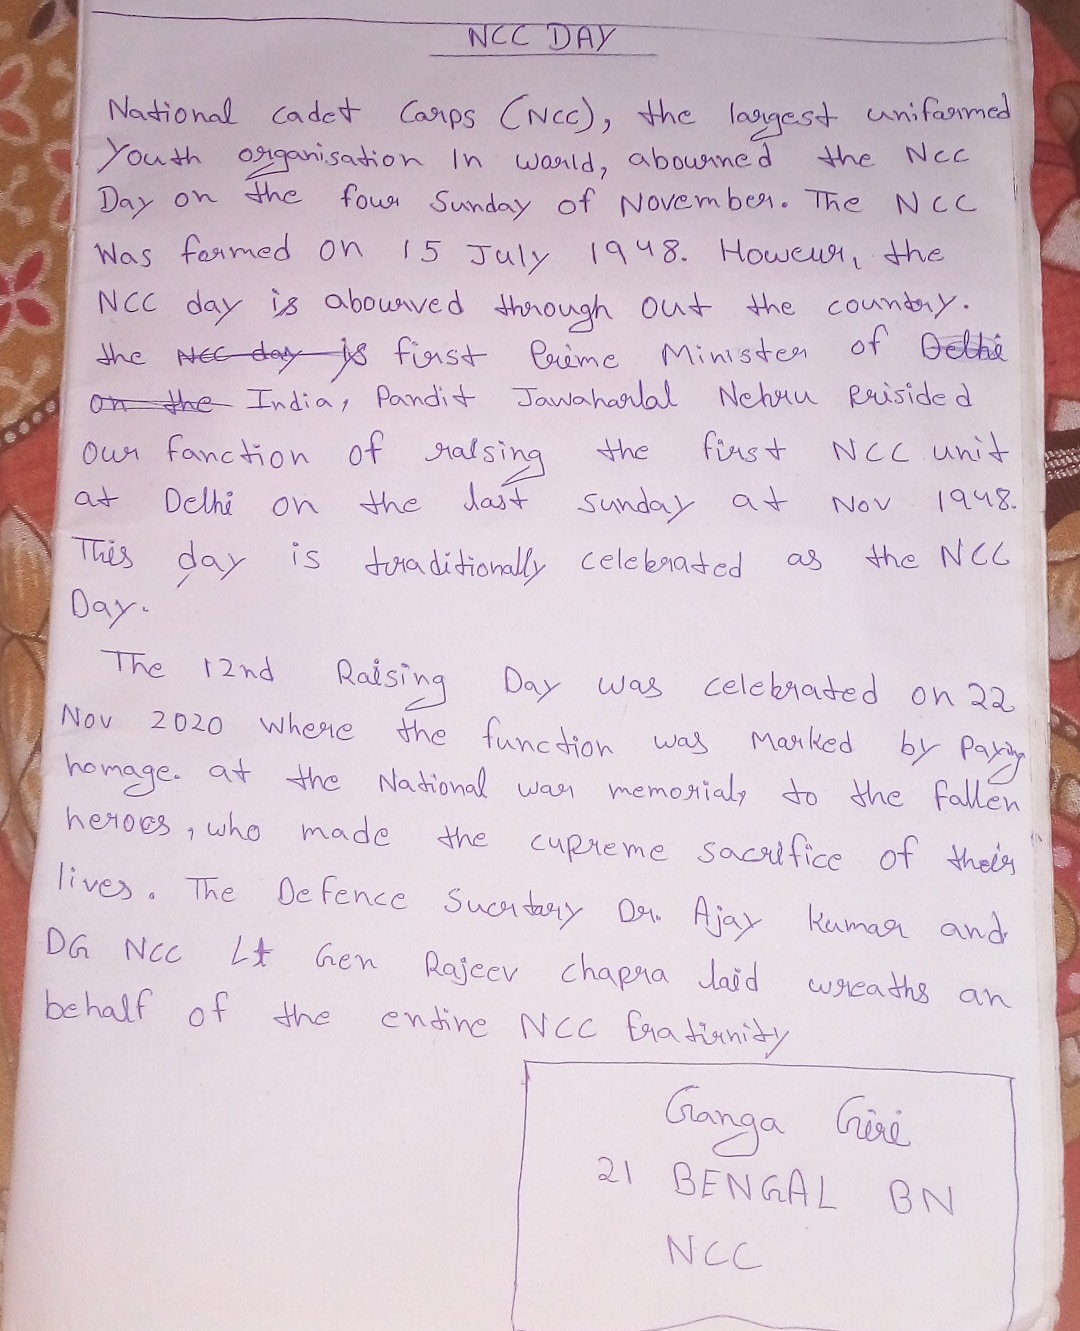 NCC DAY
National cadet Corps (NCC), the largest uniformed
Youth organisation In world, abourned the NCC
Day on the four Sunday of November. The NCC
Was formed on 15 July 1948. Howeur, the
NCC day is abourved through out the country.
the NCC day is first Prime Minister of Delhi
on the India, Pandit Jawaharlal Nehru Prisided
our fanction of ralsing the first NCC unit
at Delhi on the last sunday at Nov 1948.
This day is traditionally celebrated as the NCC
Day.
The 12nd Raising Day was celebrated on 22
Nov 2020 where the function was Marked by Paying
homage. at the National war memorial, to the fallen
heroes, who made the cupreme sacrifice of their
lives. The Defence Sucrtary Dr. Ajay kumar and
DG NCC Lt Gen Rajeev chapra laid wreaths an
behalf of the entire NCC fratirnity
Ganga Giri
21 BENGAL BN
NCC